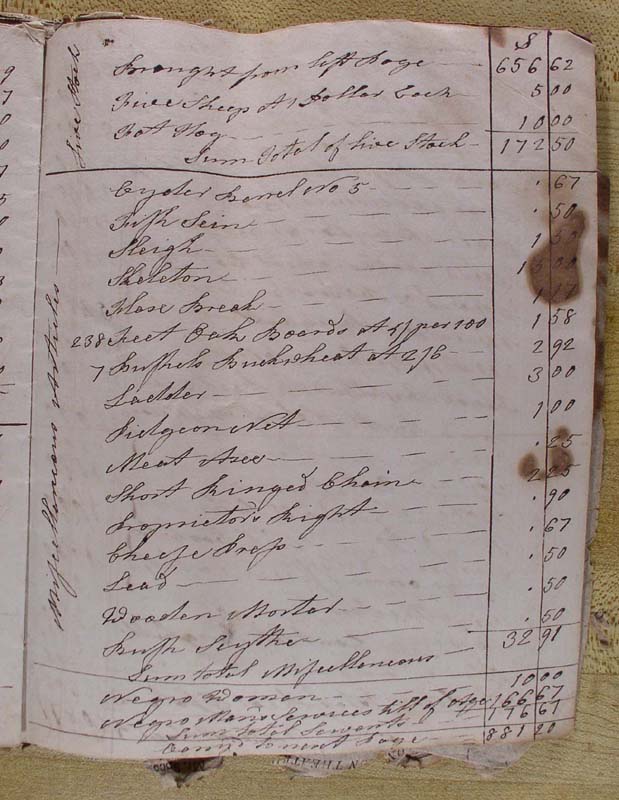 $
Live Stock
Brought from left Page 656 62
Five Sheep At 1 Dollar Each 5 00
Fat Hog 10 00
Sum Total of Live Stock 172 50
Miscellaneous Articles
Cyder Barrel No 5 . 67
Fish Sein . 50
Sleigh 1 50
Skeleton 15 00
Flax Break 1 17
238 Feet Oak Boards at 4/ per 100 1 58
7 Bushels Buckwheat at 2/6 2 92
Ladder 3 00
Pidgeon Net 1 00
Meat Axe . 25
Short Ringed Chain 2 25
Proprietor's Right . 90
Cheese Press . 67
Lead . 50
Wooden Mortar . 50
Bush Scythe . 50
Sum total Miscellaneous 32 91
Negro Woman 10 00
Negro Man's Services till of age 166 67
Sum total Servants 176 67
Carry'd to next Page 881 20